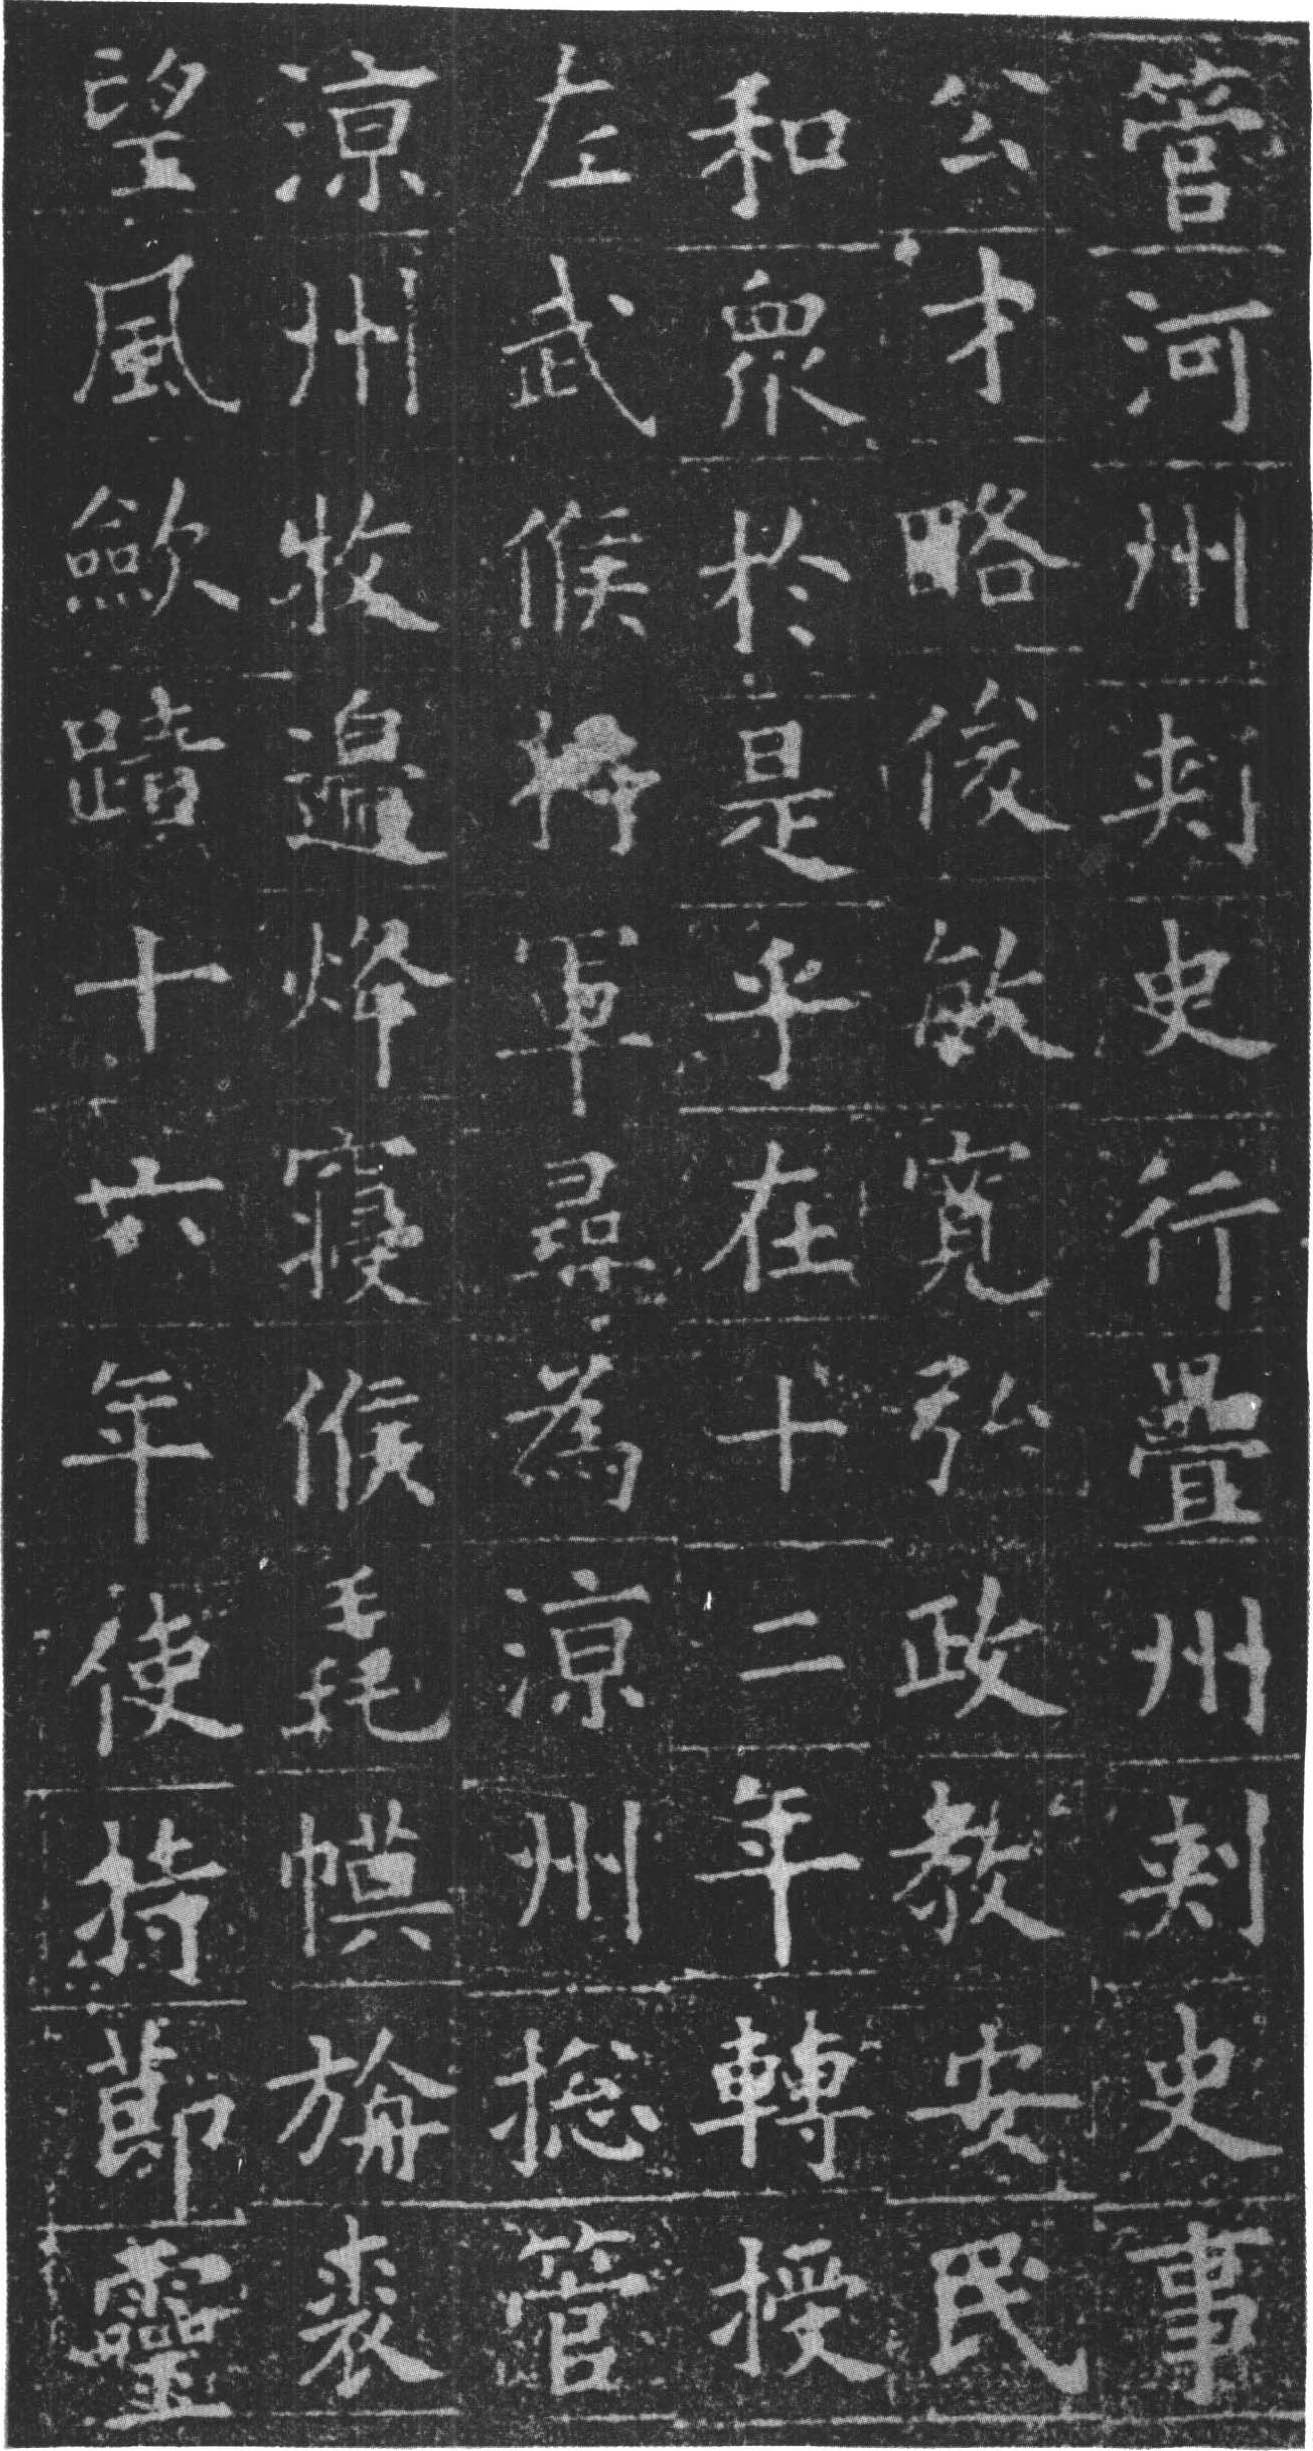 管河州刾史行疊州刾史事
公才略俊敏寬弘政教安民
和衆於是乎在十二年轉授
左武候將軍尋為涼州揔管
涼州牧邉烽寝候毳幙旃裘
望風歛蹟十六年使持莭靈